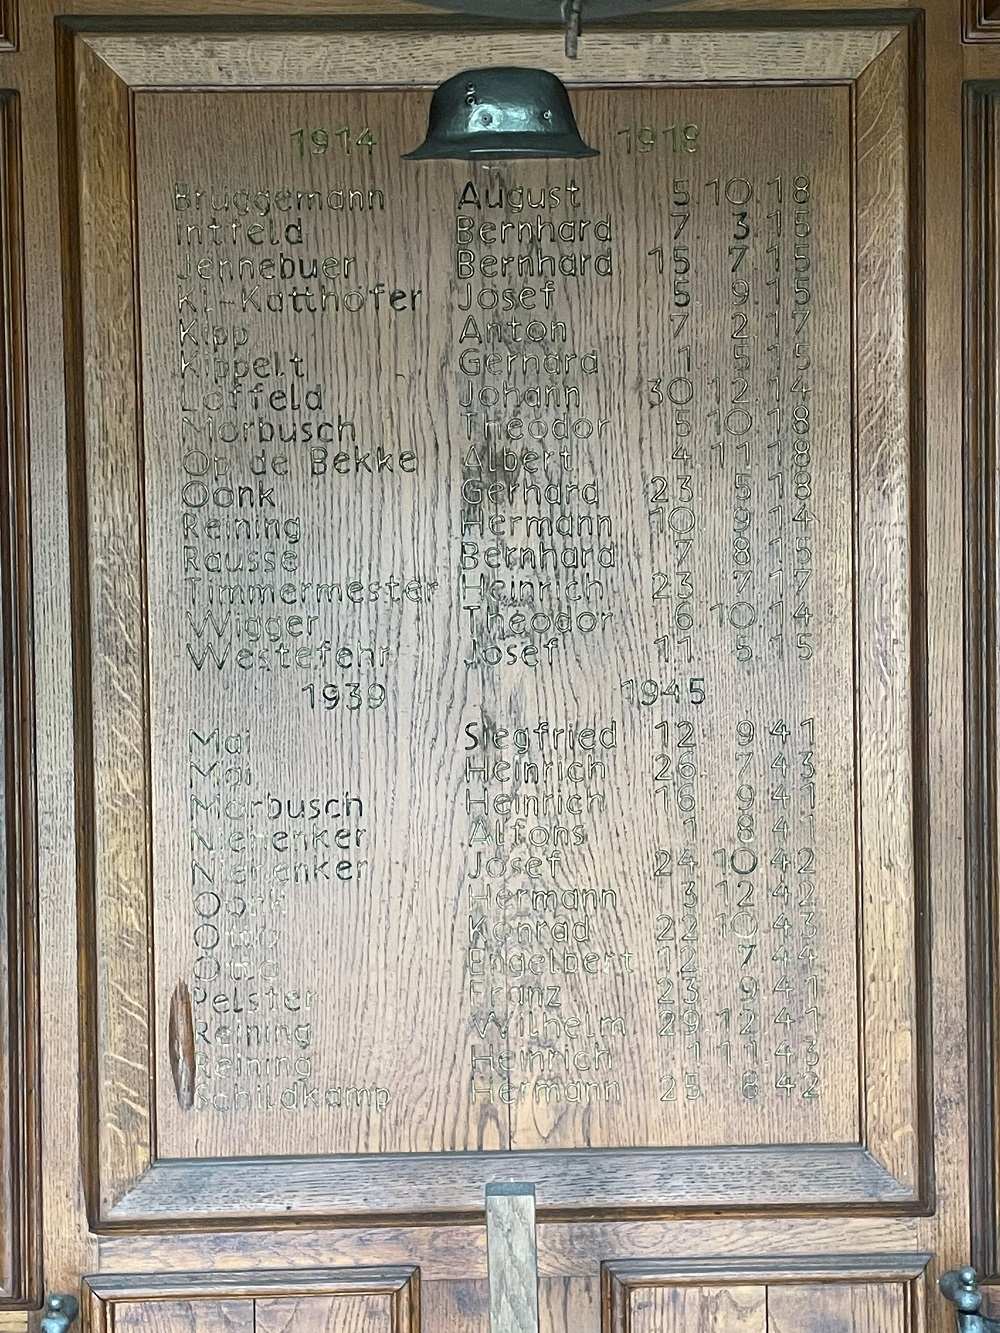 1914 1918
Brüggemann August 5 10 18
Intfeld Bernhard 7 3 15
Jennebuer Bernhard 15 7 15
Kl-Katthöfer Josef 5 9 15
Kipp Anton 7 2 17
Kippelt Gerhard 1 5 15
Loffeld Johann 30 12 14
Morbusch Theodor 5 10 18
Op de Bekke Albert 4 11 18
Oonk Gerhard 23 5 18
Reining Hermann 10 9 14
Rausse Bernhard 7 8 15
Timmermester Heinrich 23 7 17
Wigger Theodor 6 10 14
Westefehr Josef 11 5 15
1939 1945
Mai Siegfried 12 9 41
Mai Heinrich 26 7 43
Morbusch Heinrich 16 9 41
Nienenker Alfons 1 8 41
Nienenker Josef 24 10 42
Oonk Hermann 3 12 42
Konrad 22 10 43
Engelbert 12 7 44
Pelster Franz 23 9 41
Reining Wilhelm 29 12 41
Reining Heinrich 1 11 43
Schildkamp Hermann 25 8 42